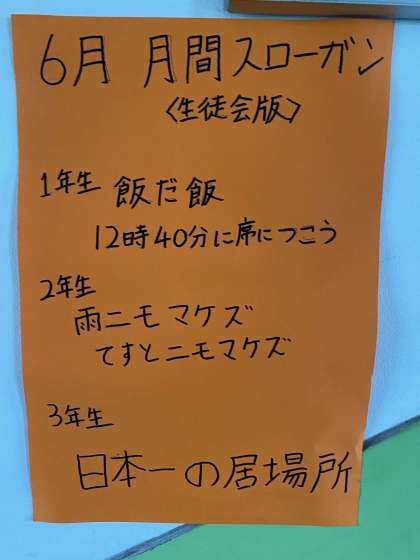 6月 月間スローガン
〈生徒会版〉
1年生 飯だ飯
12時40分に席につこう
2年生
雨ニモマケズ
てすとニモマケズ
3年生
日本一の居場所